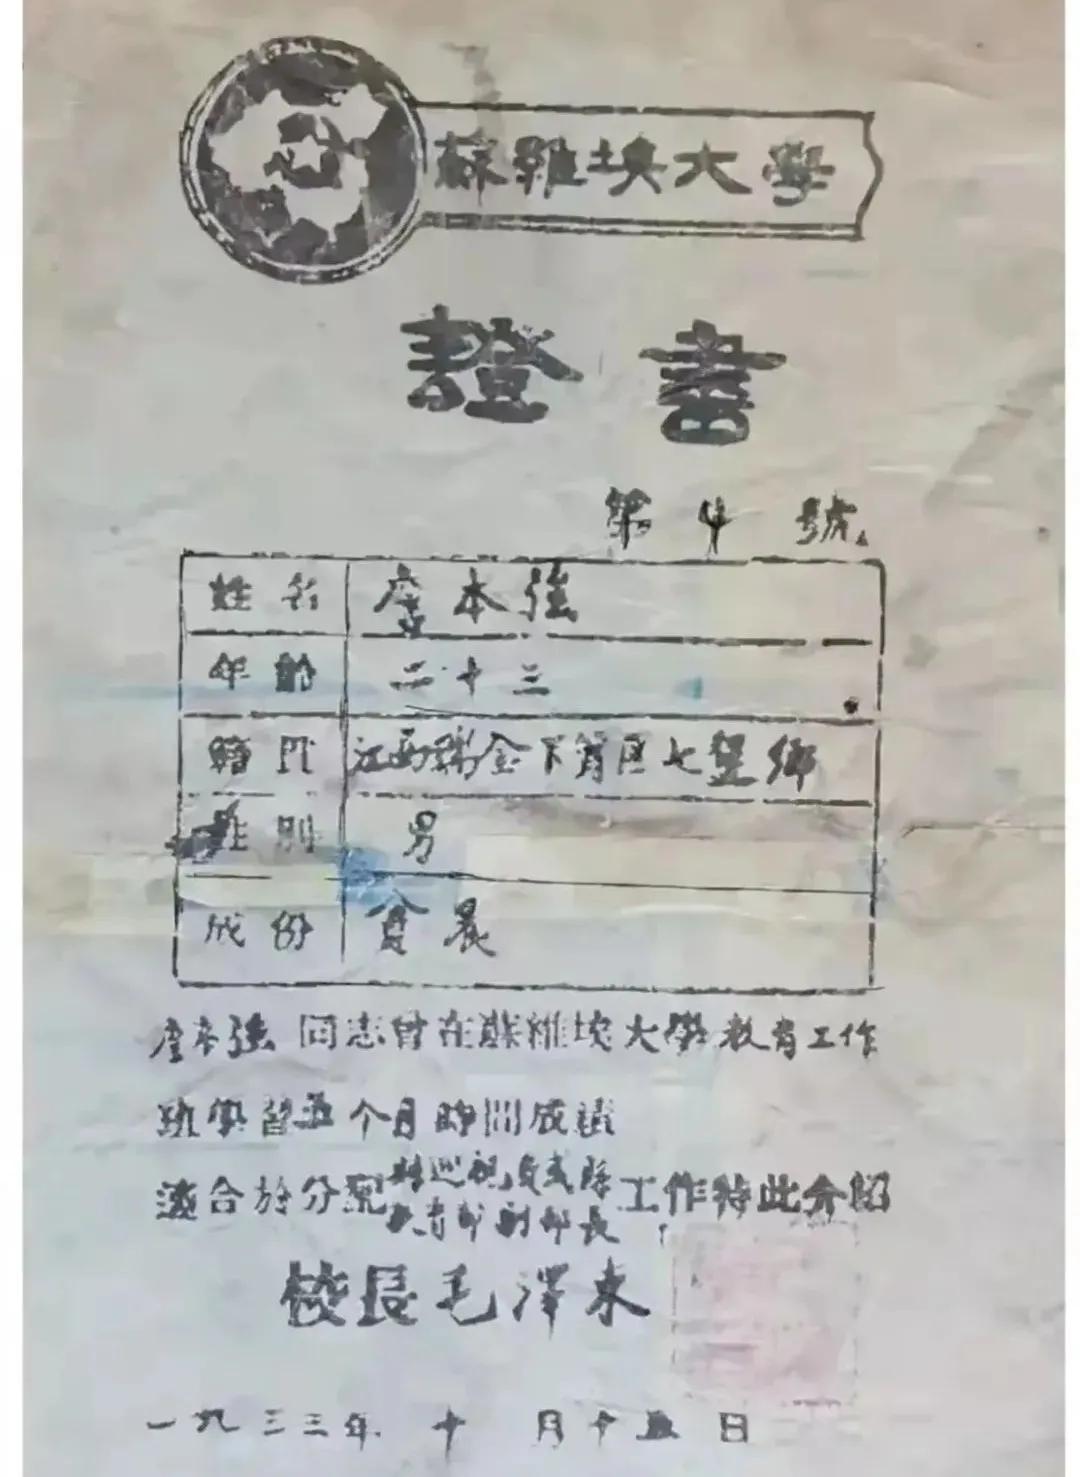 蘇維埃大學
證書
第 4 號
姓名 唐本強
年齡 二十三
籍貫 江西瑞金下肖區七堡鄉
性别 男
成份 貧農
唐本強 同志曾在蘇維埃大學教育工作
班學習五个月時間成績
適合於分配 工作特此介紹
校長毛澤東
一九三三年 十 月十五日